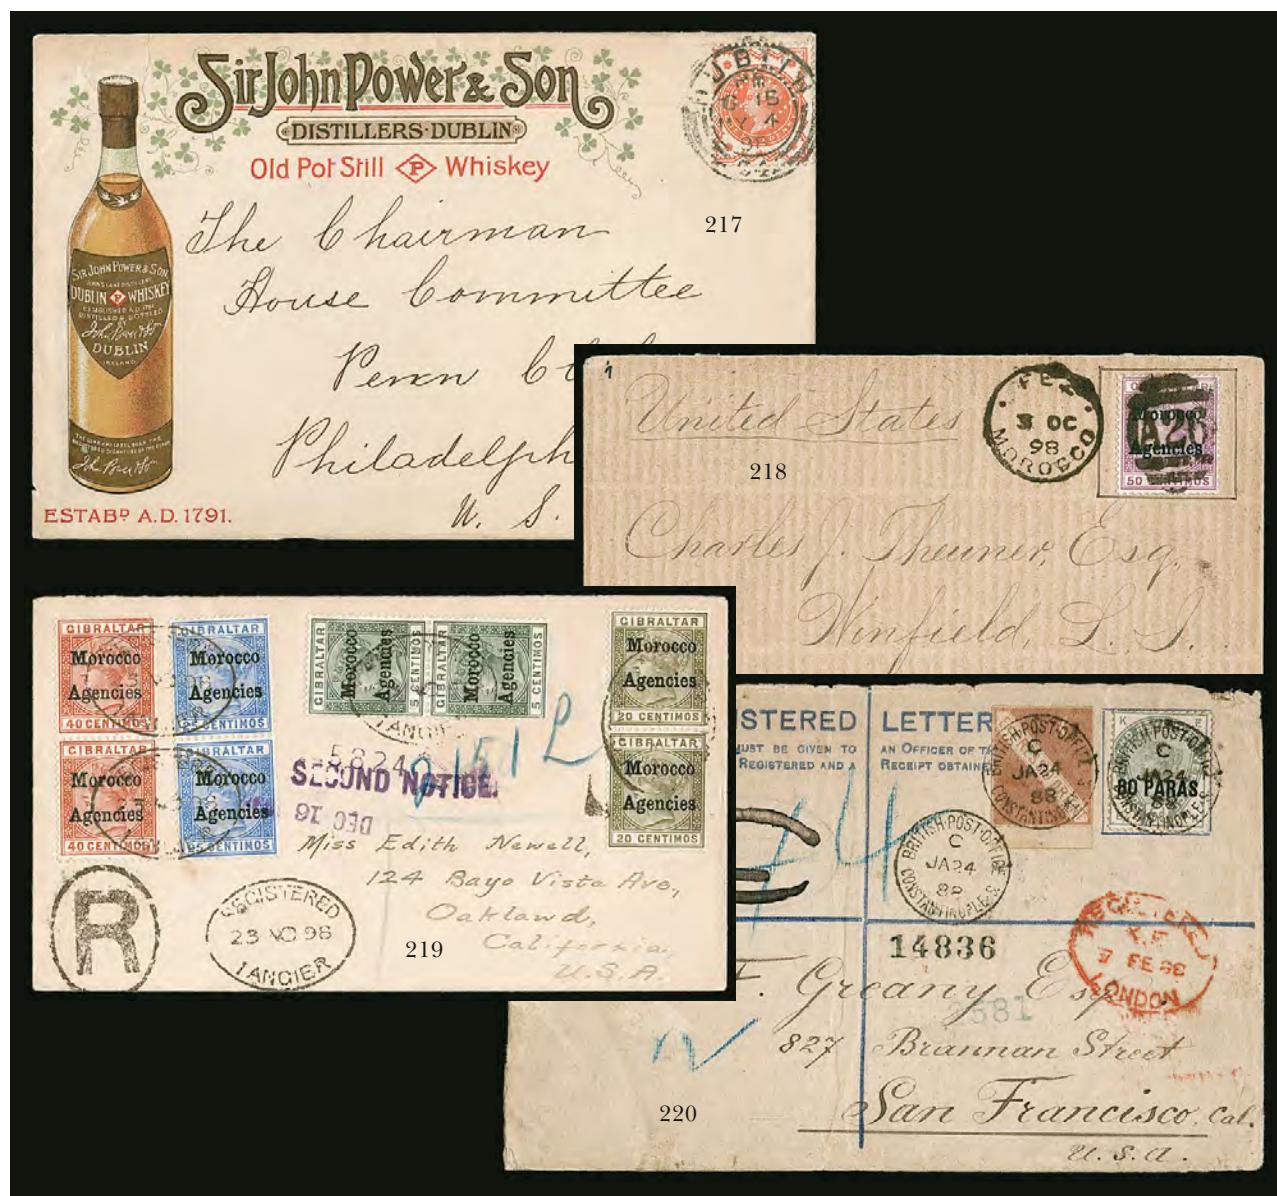 Sir John Power & Son
DISTILLERS·DUBLIN
Old Pot Still P Whiskey
SIR JOHN POWER & SON
DUBLIN P WHISKEY
ESTABLISHED A.D. 1791
DISTILLED & BOTTLED
John Power & Son
DUBLIN
IRELAND
ESTABD A.D. 1791.
DUBLIN
15
98
The Chairman
House Committee
Penn Cl
Philadelph
U. S.
217
United States
FEZ
3 OC
98
MOROCCO
Morocco
A26
Agencies
50 CENTIMOS
218
Charles J. Theuner, Esq.
Winfield, L. I.
GIBRALTAR
Morocco
Agencies
40 CENTIMOS
GIBRALTAR
Morocco
Agencies
25 CENTIMOS
GIBRALTAR
Morocco
Agencies
5 CENTIMOS
GIBRALTAR
Morocco
Agencies
5 CENTIMOS
GIBRALTAR
Morocco
Agencies
20 CENTIMOS
GIBRALTAR
Morocco
Agencies
40 CENTIMOS
GIBRALTAR
Morocco
Agencies
25 CENTIMOS
GIBRALTAR
Morocco
Agencies
20 CENTIMOS
TANGIER
5824
SECOND NOTICE.
DEC 16
Miss Edith Newell,
124 Bayo Vista Ave,
Oakland,
California,
U.S.A.
R
REGISTERED
23 NO 98
TANGIER
219
STERED LETTER
UST BE GIVEN TO AN OFFICER OF TH
REGISTERED AND A RECEIPT OBTAINE
BRITISH·POST·OFFICE
C
JA 24
88
CONSTANTINOPLE
BRITISH·POST·OFFICE
C
JA 24
88
CONSTANTINOPLE.S.
80 PARAS
BRITISH·POST·OFFICE
C
JA 24
88
CONSTANTINOPLE.S.
14836
REGISTERED
7 FE 88
LONDON
F. Greany Esq
2381
827 Brannan Street
San Francisco, Cal.
U.S.A.
220